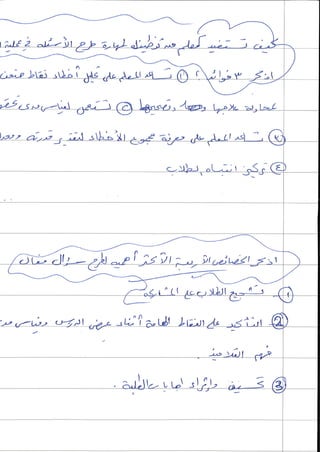 كيف تستفيد كمعلم من توظيفك لمهارة طرح الأسئلة في عملية
اذكر ٣ فوائد؟ ① تساعد المعلم على تحليل أخطاء نقاط ضعف
لمحاولة علاجها وتصحيحها ② تستعمل لقياس مدى تحقق
③ تساعد المعلم على معرفة مجموع الأخطاء لتقدير قدرته
④ تركيز انتباه الطلاب
اذكر الخصائص الأربعة الأكثر أهمية لطرح سؤال فعال
① تشجيع الطلاب على المشاركة
② التأكيد على النقاط الهامة أثناء عرض الدرس وقياس مدى
فهم التلاميذ .
③ تحسين وإثراء إجابات الطلبة .